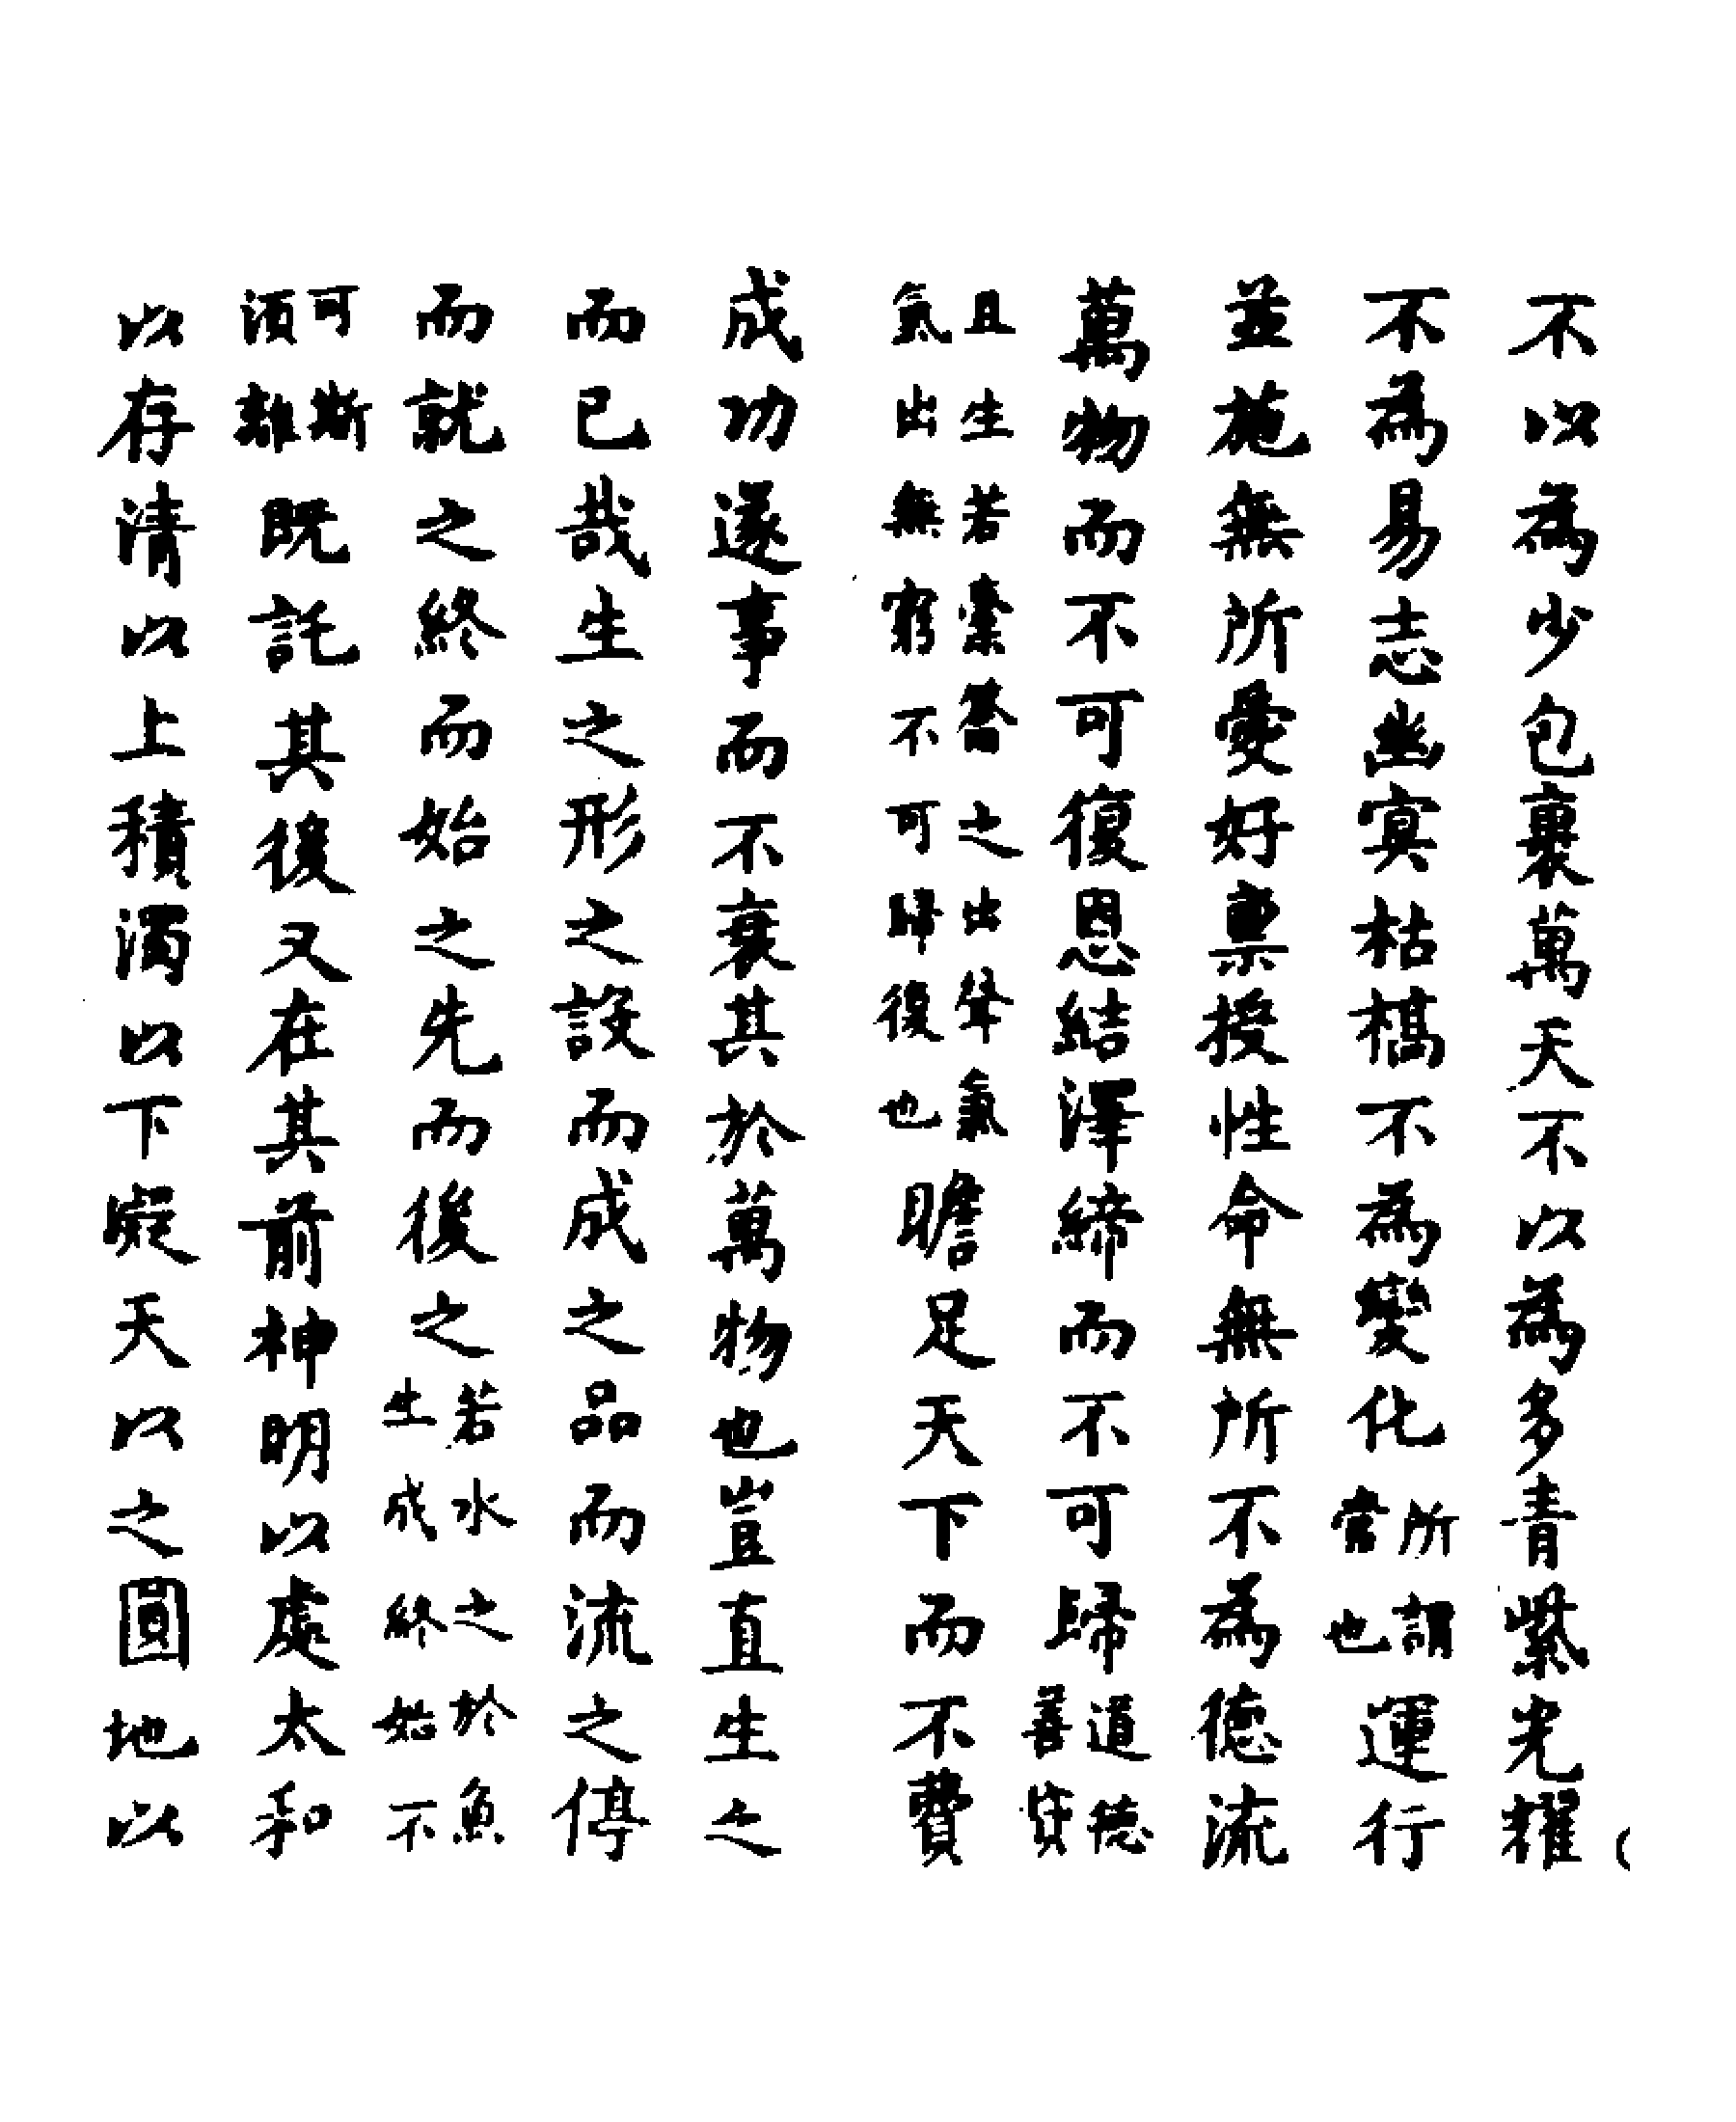 不以為少包裹萬天不以為多青紫光耀
不為易志幽冥枯槁不為變化所謂常也運行
並施無所愛好稟授性命無所不為德流
萬物而不可復恩結澤締而不可歸道德善貸
且生若橐籥之出聲氣氣出無窮不可歸復也瞻足天下而不費
成功遂事而不衰其於萬物也豈直生之
而已哉生之形之設而成之品而流之停
而就之終而始之先而後之若水之於魚生成終始不
可斯須離既託其後又在其前神明以處太和
以存清以上積濁以下凝天以之圓地以